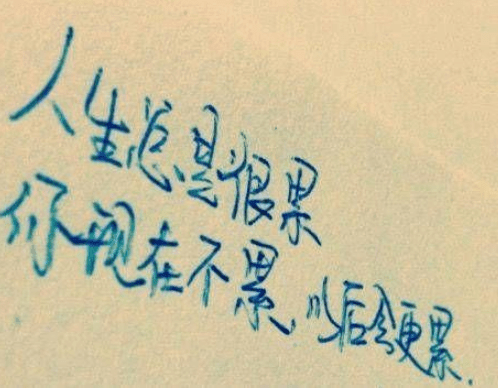 人生总是很累
你现在不累,以后会更累.